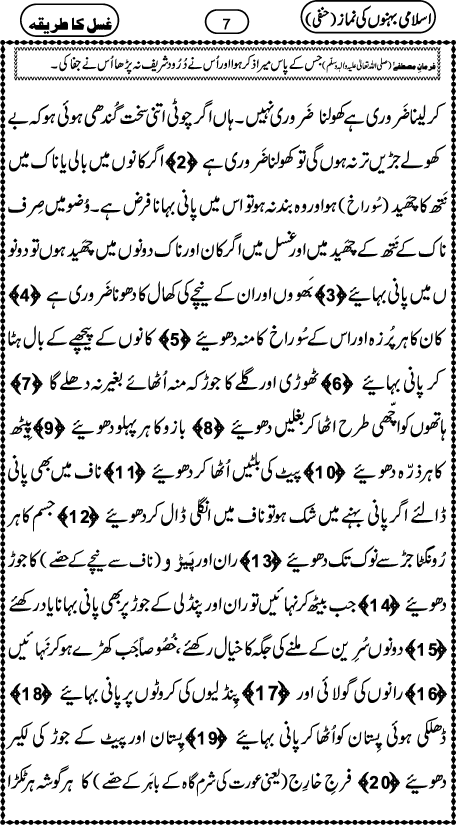 اسلامی بہنوں کی نماز (حنفی) 7 غسل کا طریقہ
فرمانِ مصطفٰے (صلی اللہ تعالٰی علیہ واٰلہٖ وسلّم) جس کے پاس میرا ذکر ہوا اور اُس نے دُرُود شریف نہ پڑھا اُس نے جفا کی۔
کر لینا ضَروری ہے کھولنا ضَروری نہیں۔ ہاں اگر چوٹی اتنی سخت گُندھی ہوئی ہو کہ بے
کھولے جڑیں تر نہ ہوں گی تو کھولنا ضَروری ہے ﴿2﴾ اگر کانوں میں بالی یا ناک میں
نَتھ کا چَھید (سُوراخ) ہو اور وہ بند نہ ہو تو اس میں پانی بہانا فرض ہے۔ وُضو میں صِرف
ناک کے نَتھ کے چَھید میں اور غسل میں اگر کان اور ناک دونوں میں چَھید ہوں تو دونو
ں میں پانی بہائیے ﴿3﴾ بَھووں اور ان کے نیچے کی کھال کا دھونا ضَروری ہے ﴿4﴾
کان کا ہر پُرزہ اور اس کے سُوراخ کا منہ دھویئے ﴿5﴾ کانوں کے پیچھے کے بال ہٹا
کر پانی بہائیے ﴿6﴾ ٹھوڑی اور گلے کا جوڑ کہ منہ اُٹھائے بغیر نہ دھلے گا ﴿7﴾
ہاتھوں کو اچّھی طرح اٹھا کر بغلیں دھویئے ﴿8﴾ بازو کا ہر پہلو دھویئے ﴿9﴾ پیٹھ
کا ہر ذرّہ دھویئے ﴿10﴾ پیٹ کی بلٹیں اُٹھا کر دھویئے ﴿11﴾ ناف میں بھی پانی
ڈالئے اگر پانی بہنے میں شک ہو تو ناف میں انگلی ڈال کر دھویئے ﴿12﴾ جسم کا ہر
رُونگٹا جڑ سے نوک تک دھویئے ﴿13﴾ ران اور پَیڑو (ناف سے نیچے کے حصّے) کا جوڑ
دھویئے ﴿14﴾ جب بیٹھ کر نہائیں تو ران اور پنڈلی کے جوڑ پر بھی پانی بہانا یاد رکھئے
﴿15﴾ دونوں سُرین کے ملنے کی جگہ کا خیال رکھئے، خُصُوصاً جَب کھڑے ہو کر نَہائیں
﴿16﴾ رانوں کی گولائی اور ﴿17﴾ پِنڈلیوں کی کروٹوں پر پانی بہائیے ﴿18﴾
ڈھلکی ہوئی پِستان کو اُٹھا کر پانی بہائیے ﴿19﴾ پِستان اور پیٹ کے جوڑ کی لکیر
دھویئے ﴿20﴾ فرجِ خارِج (یعنی عورت کی شرم گاہ کے باہَر کے حصّے) کا ہر گوشہ ہر ٹکڑا